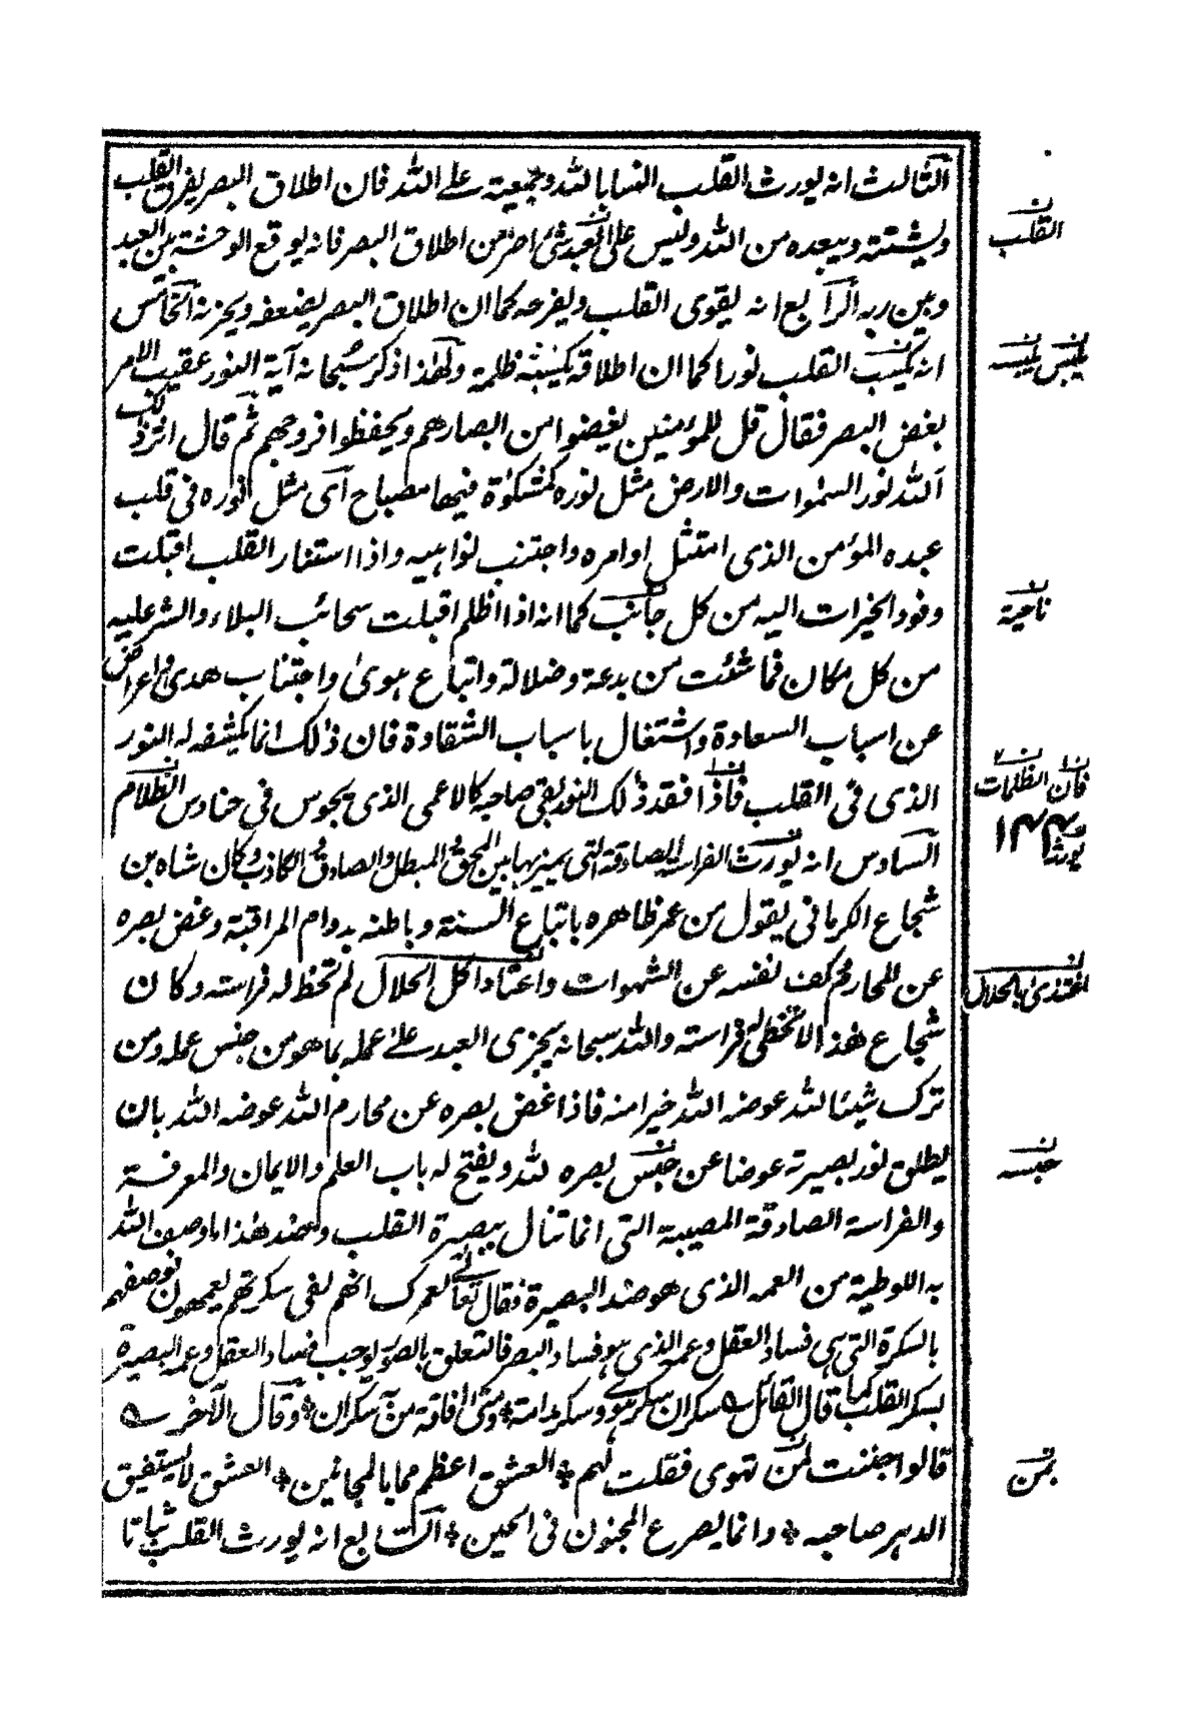 الثالث انه يورث القلب انسا بالله وجمعية على الله فان اطلاق البصر يفرق القلب
ويشتته ويبعده من الله وليس على العبد شئ اضر من اطلاق البصر فانه يوقع الوحشة بين العبد
وبين ربه الرابع انه يقوى القلب ويفرحه كما ان اطلاق البصر يضعفه ويحزنه الخامس
انه يكسب القلب نورا كما ان اطلاقه يكسبه ظلمة ولهذا ذكر سبحانه آية النور عقيب الامر
بغض البصر فقال قل للمؤمنين يغضوا من ابصارهم ويحفظوا فروجهم ثم قال اثر ذلك
الله نور السموات والارض مثل نوره كمشكوة فيها مصباح اى مثل نوره فى قلب
عبده المؤمن الذى امتثل اوامره واجتنب نواهيه واذا استنار القلب اقبلت
وفود الخيرات اليه من كل جانب كما انه اذا اظلم اقبلت سحائب البلاء والشر عليه
من كل مكان فما شئت من بدعة وضلالة واتباع هوى واجتناب هدى واعراض
عن اسباب السعادة واشتغال باسباب الشقاوة فان ذلك انما يكشفه له النور
الذى فى القلب فاذا فقد ذلك النور بقى صاحبه كالاعمى الذى يجوس فى حنادس الظلام
السادس انه يورث الفراسة الصادقة التى يميز بها بين المحق والمبطل والصادق والكاذب وكان شاه بن
شجاع الكرمانى يقول من عمر ظاهره باتباع السنة وباطنه بدوام المراقبة وغض بصره
عن المحارم وكف نفسه عن الشهوات واعتاد اكل الحلال لم تخط له فراسته وكان
شجاع هذا لا تخطئ له فراسته والله سبحانه يجزى العبد على عمله بما هو من جنس عمله ومن
ترك شيئا لله عوضه الله خيرا منه فاذا غض بصره عن محارم الله عوضه الله بان
يطلق نور بصيرته عوضا عن حبس بصره لله ويفتح له باب العلم والايمان والمعرفة
والفراسة الصادقة المصيبة التى انما تنال ببصيرة القلب وضد هذا ما وصف الله
به اللوطية من العمه الذى هو ضد البصيرة فقال تعالى لعمرك انهم لفى سكرتهم يعمهون فوصفهم
بالسكرة التى هى فساد العقل وعمه الذى هو فساد البصر فالتعلق بالصور يوجب فساد العقل وعمه البصيرة
بسكر القلب كما قال القائل سكران سكر هوى وسكر مدامة ومتى افاقة من به سكران وقال الآخر
قالوا جننت لمن تهوى فقلت لهم العشق اعظم مما بالمجانين العشق لا يستفيق
الدهر صاحبه وانما يصرع المجنون فى الحين السابع انه يورث القلب ثباتا
ن
القلب
ن
يلبس يلبسه
ن
ناحية
ن
فان الظلمات
١٢
يورثه
ن
اغتذى بالحلال
ن
حبسه
ن
بمن